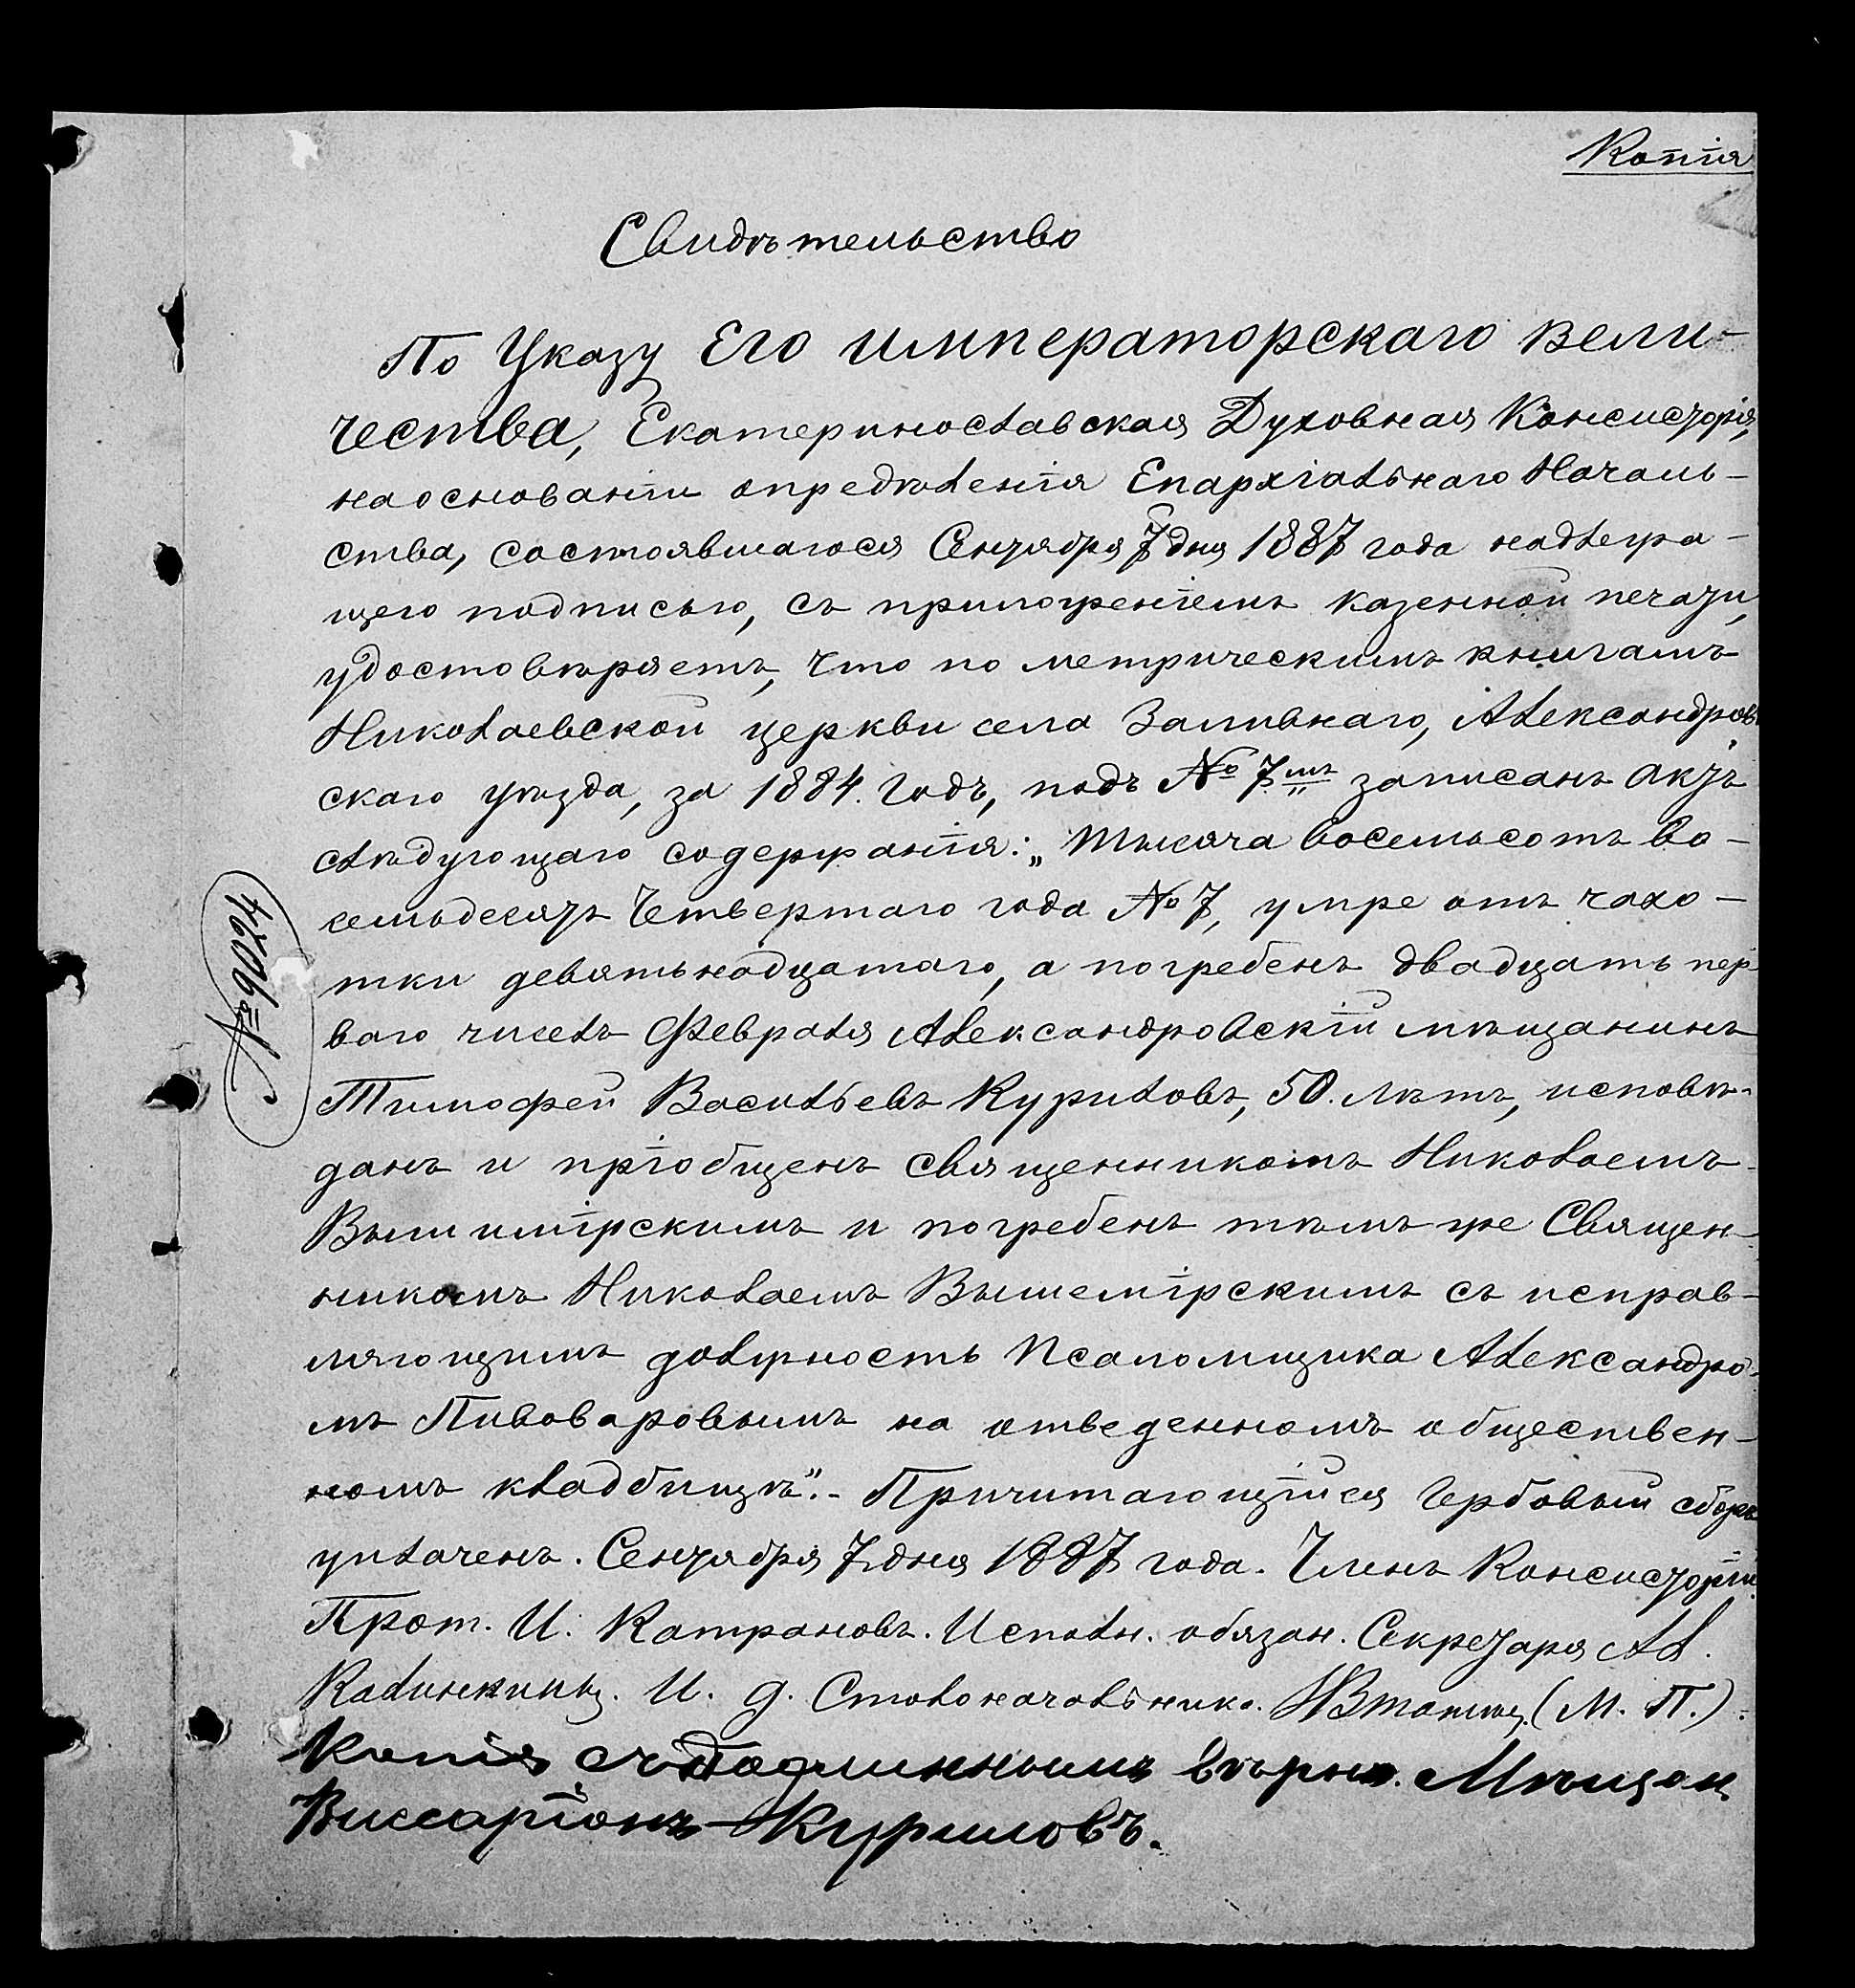 Копія
Свидѣтельство
По Указу Его Императорскаго Вели-
чества, Екатеринославская Духовная Консисторія,
на основаніи опредѣленія Епархіальнаго Началь-
ства, состоявшагося Сентября 7 дня 1887 года надлежа-
щею подписью, съ приложеніемъ казенной печати,
удостовѣряетъ, что по метрическимъ книгамъ
Николаевской церкви села Заливнаго, Александров
скаго уѣзда, за 1884. годъ, подъ № 7мъ записанъ актъ
слѣдующаго содержанія: „Тысяча восемьсотъ во-
семьдесятъ четвертаго года № 7, умре отъ чахо-
тки девятьнадцатаго, а погребенъ двадцать пер
ваго числъ Февраля Александровскій мѣщанинъ
Тимофей Васильевъ Куриловъ, 50. лѣтъ, исповѣ-
данъ и пріобщенъ священникомъ Николаемъ
Вышимірскимъ и погребенъ тѣмъ же Священ-
никомъ Николаемъ Вышемірскимъ съ исправ-
ляющимъ должность Псаломщика Александро-
мъ Пивоваровымъ на отведенномъ обществен-
номъ кладбищѣ“.- Причитающійся гербовый сборъ
уплаченъ. Сентября 7 дня 1887 года. Членъ Консисторіи
Прот. И. Катрановъ. Исполн. обязан. Секретаря Ал.
И. д. Столоначальника. (М. П.)
Копія съ подлиннымъ вѣрна. Мѣщан
Виссаріонъ Куриловъ.
4206